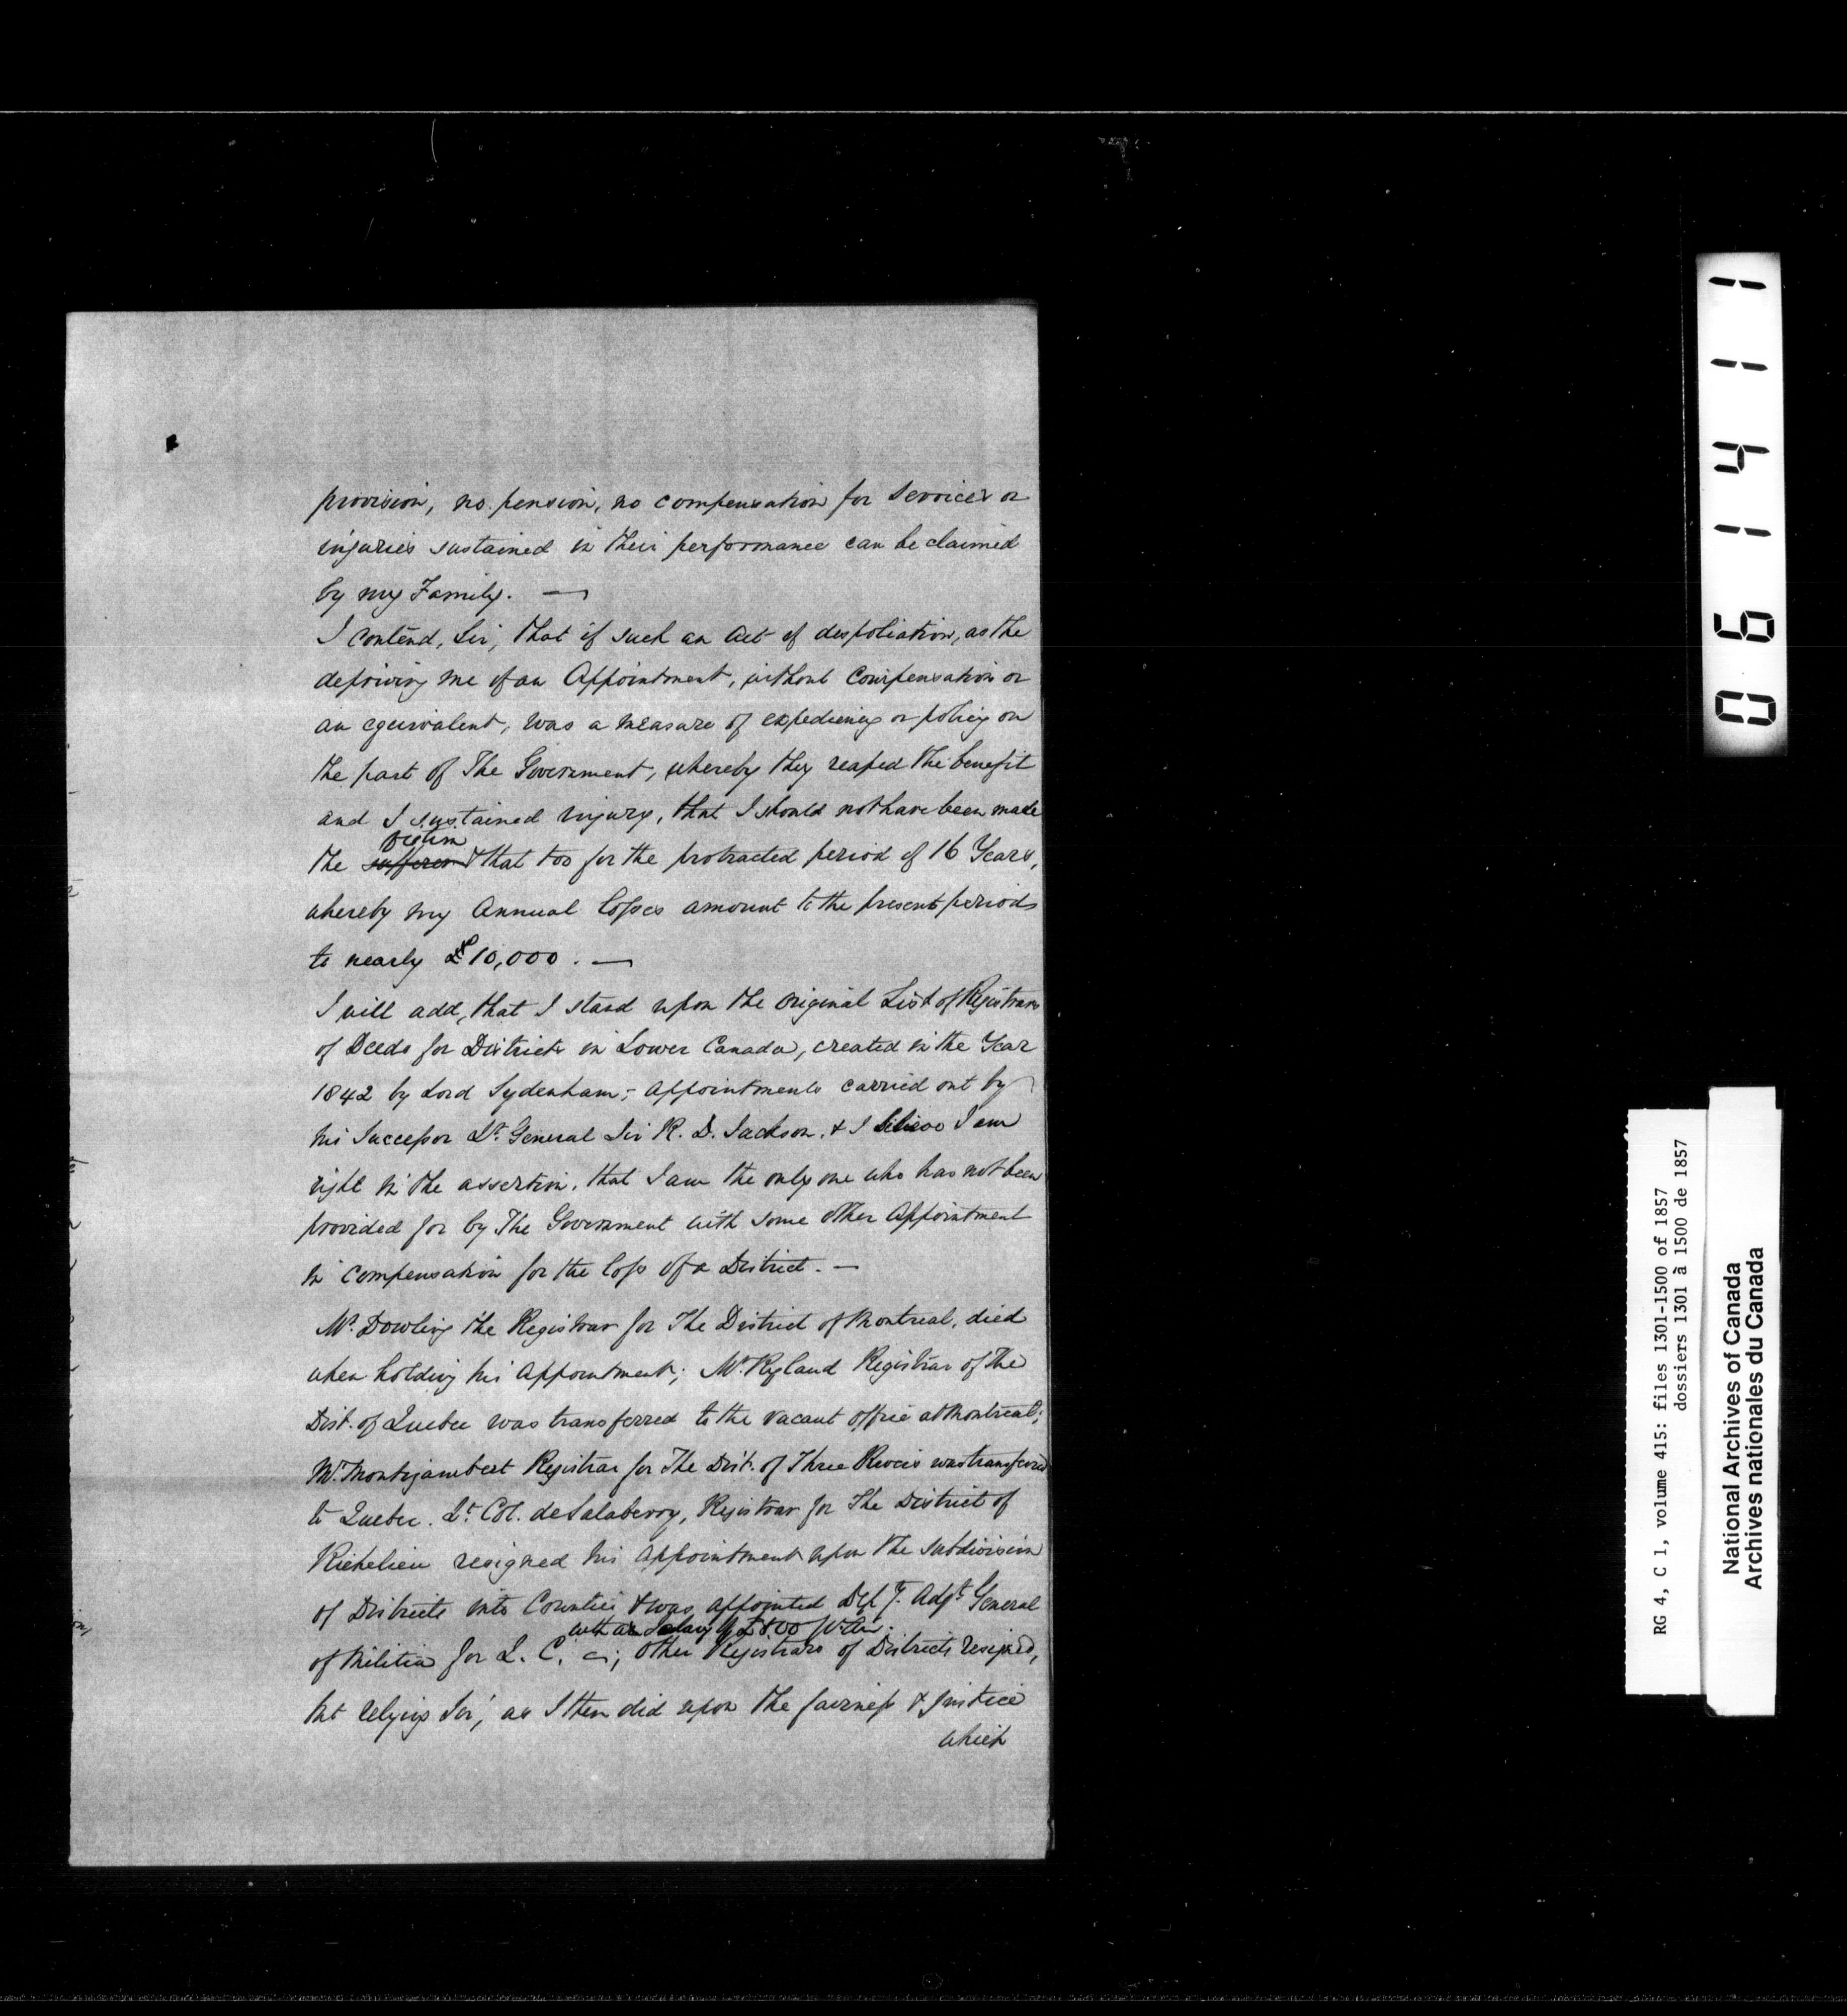 provision, no pension, no compensation for services or
injuries sustained in their performance can be claimed
by my Family. —
I contend, Sir, that if such an act of despoliation, as the
depriving me of an Appointment, without Compensation or
an equivalent, was a measure of expediency or policy on
the part of The Government, whereby they reaped the benefit
and I sustained injury, that I should not have been made
victim
the sufferer & that too for the protracted period of 16 Years,
whereby my Annual losses amount to the present period
to nearly £10,000. —
I will add, that I stand upon the original List of Registrars
of Deeds for Districts in Lower Canada, created in the Year
1842 by Lord Sydenham; – Appointments carried out by
his Successor Lt. General Sir R. D. Jackson, & I believe I am
right in the assertion, that I am the only one who has not been
provided for by The Government with some other Appointment
in compensation for the loss of a District. —
Mr. Dowling the Registrar for The District of Montreal, died
when holding his Appointment; Mr. Ryland Registrar of The
Dist. of Quebec was transferred to the vacant office at Montreal;
Mr. Montizambert Registrar for The Dist. of Three Rivers was transferred
to Quebec. Lt. Col. de Salaberry, Registrar for The District of
Richelieu resigned his appointment upon the subdivision
of Districts into Counties & was appointed Depy. Adjt. General
with a Salary of £500
of Militia for L. C. ; other Registrars of Districts resigned,
but relying Sir, as I then did upon the fairness & justice
which
061411
RG 4, C 1, volume 415: files 1301-1500 of 1857
dossiers 1301 à 1500 de 1857
National Archives of Canada
Archives nationales du Canada